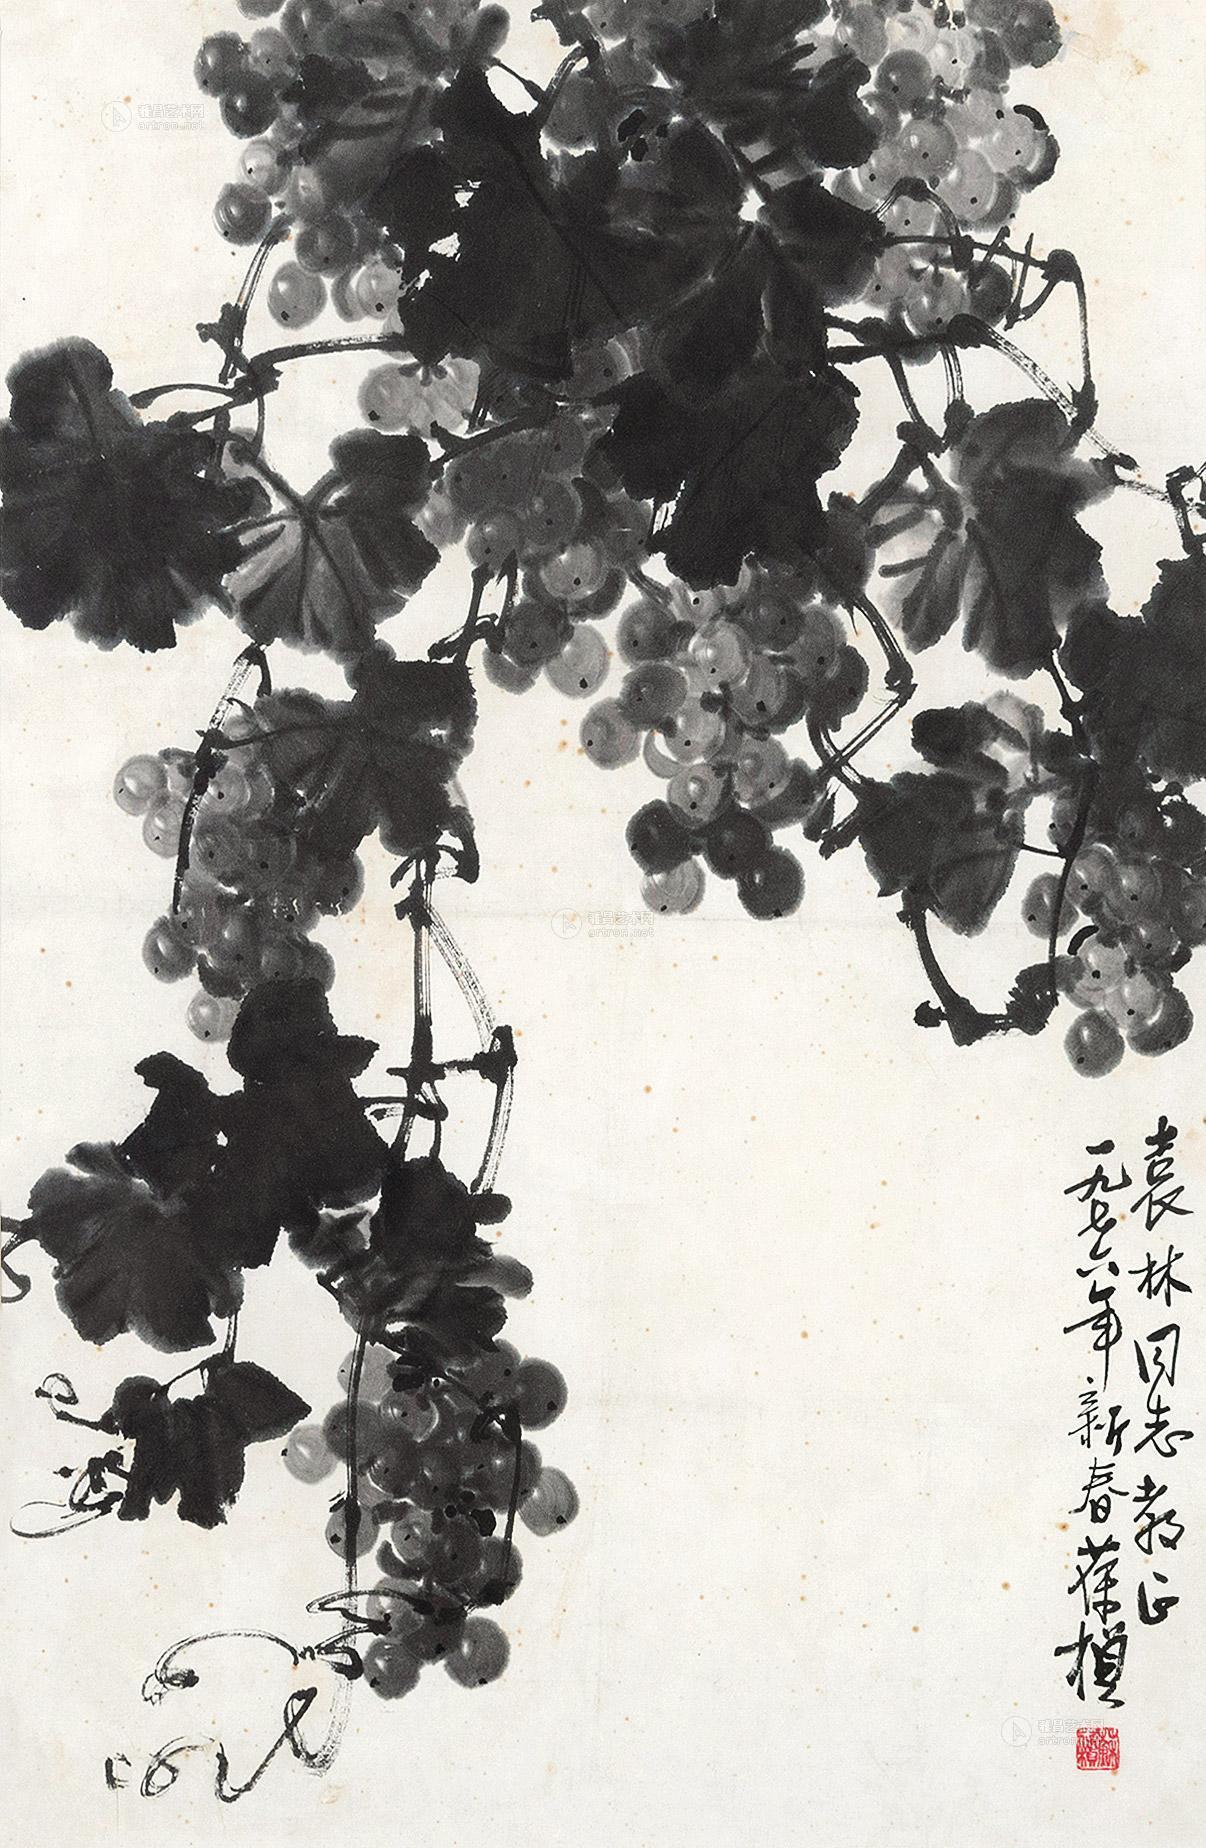 袁林同志教正
一九七六年新春葆楨
雅昌艺术网
artron.net
雅昌艺术网
artron.net
雅昌艺术网
artron.net